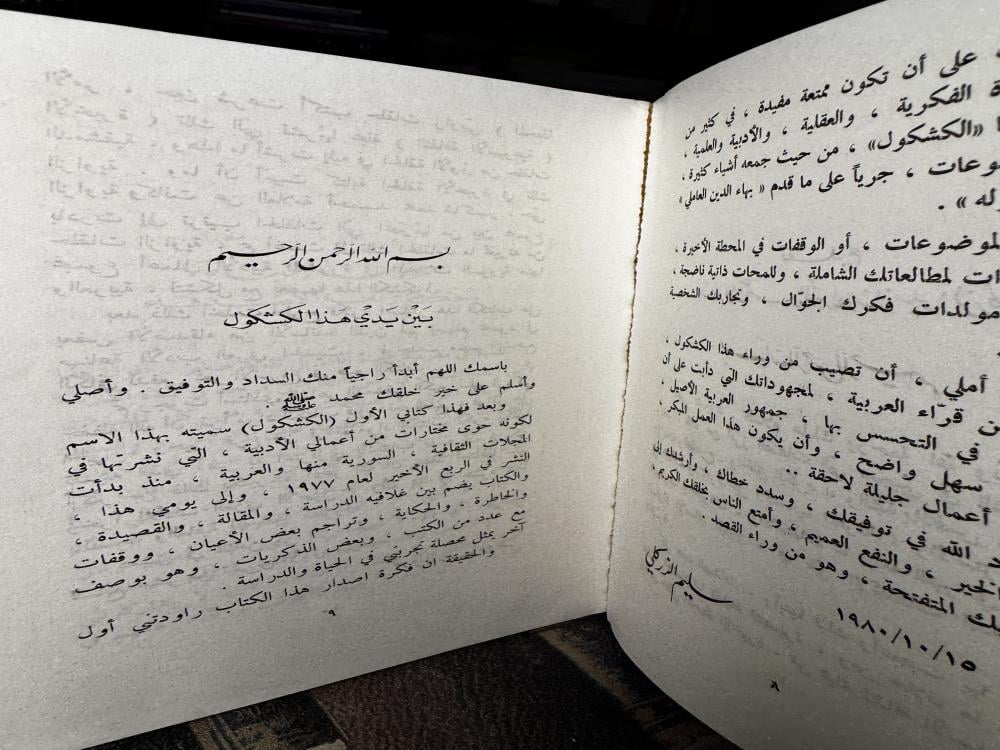 على أن تكون ممتعة مفيدة ، في كثير من
الفكرية ، والعقلية ، والأدبية والعلمية ،
«الكشكول» ، من حيث جمعه أشياء كثيرة ،
جرياً على ما قدم « بهاء الدين العاملي »
» .
أو الوقفات في المحطة الأخيرة ،
لمطالعاتك الشاملة ، وللمحات ذاتية ناضجة ،
مولدات فكرك الجوّال ، وتجاربك الشخصية
أملي ، أن تصيب من وراء هذا الكشكول ،
قرّاء العربية ، لمجهوداتك التي دأبت على أن
في التحسس بها ، جمهور العربية الأصيل ،
سهل واضح ، وأن يكون هذا العمل المبكر ،
أعمال جليلة لاحقة ..
الله في توفيقك ، وسدد خطاك ، وأرشدك إلى
الخير ، والنفع العميم ، وأمتع الناس بخلقك الكريم ،
المتفتحة ، وهو من وراء القصد .
سليم الزركلي
١٩٨٠/١٠/١٥
٨
بسم الله الرحمن الرحيم
بَيْن يَدَيْ هَذا الكَشكول
باسمك اللهم أبدأ راجياً منك السداد والتوفيق . وأصلي
وأسلم على خير خلقك محمد ﷺ .
وبعد فهذا كتابي الأول (الكشكول) سميته بهذا الاسم
لكونه حوى مختارات من أعمالي الأدبية ، التي نشرتها في
المجلات الثقافية ، السورية منها والعربية ، منذ بدأت
النشر في الربع الأخير لعام ١٩٧٧ ، وإلى يومي هذا ،
والكتاب يضم بين غلافيه الدراسة ، والمقالة ، والقصيدة ،
والخاطرة ، والحكاية ، وتراجم بعض الأعيان ، ووقفات
مع عدد من الكتب ، وبعض الذكريات ، وهو بوصف
آخر يمثل محصلة تجربتي في الحياة والدراسة .
والحقيقة ان فكرة اصدار هذا الكتاب راودتني أول
٩